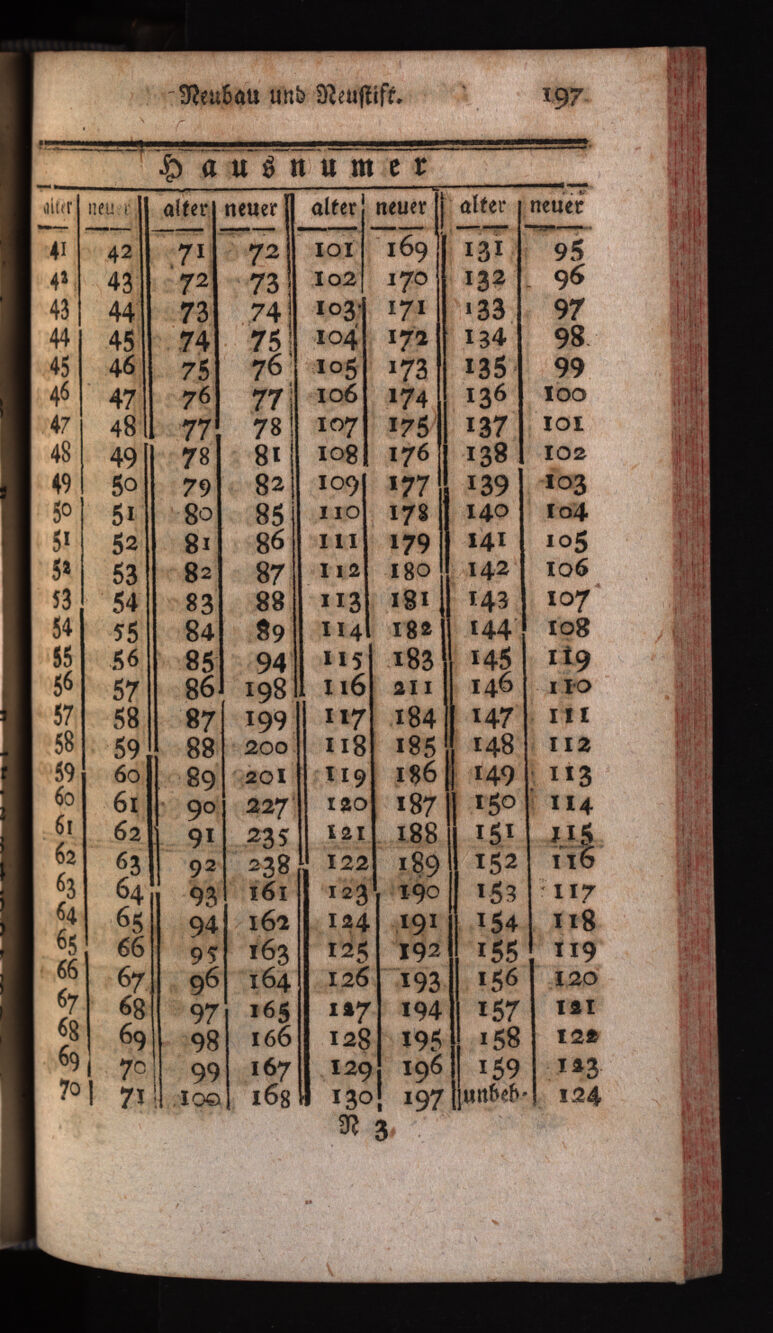 Neubau und Neustift. 197
Hausnumer
alter neuer alter neuer alter neuer alter neuer
41 42 71 72 101 169 131 95
42 43 72 73 102 170 132 96
43 44 73 74 103 171 133 97
44 45 74 75 104 172 134 98
45 46 75 76 105 173 135 99
46 47 76 77 106 174 136 100
47 48 77 78 107 175 137 101
48 49 78 81 108 176 138 102
49 50 79 82 109 177 139 103
50 51 80 85 110 178 140 104
51 52 81 86 111 179 141 105
52 53 82 87 112 180 142 106
53 54 83 88 113 181 143 107
54 55 84 89 114 182 144 108
55 56 85 94 115 183 145 119
56 57 86 198 116 211 146 110
57 58 87 199 117 184 147 111
58 59 88 200 118 185 148 112
59 60 89 201 119 186 149 113
60 61 90 227 120 187 150 114
61 62 91 235 121 188 151 115
62 63 92 238 122 189 152 116
63 64 93 161 123 190 153 117
64 65 94 162 124 191 154 118
65 66 95 163 125 192 155 119
66 67 96 164 126 193 156 120
67 68 97 165 127 194 157 121
68 69 98 166 128 195 158 122
69 70 99 167 129 196 159 123
70 71 100 168 130 197 unbeb. 124
N 3